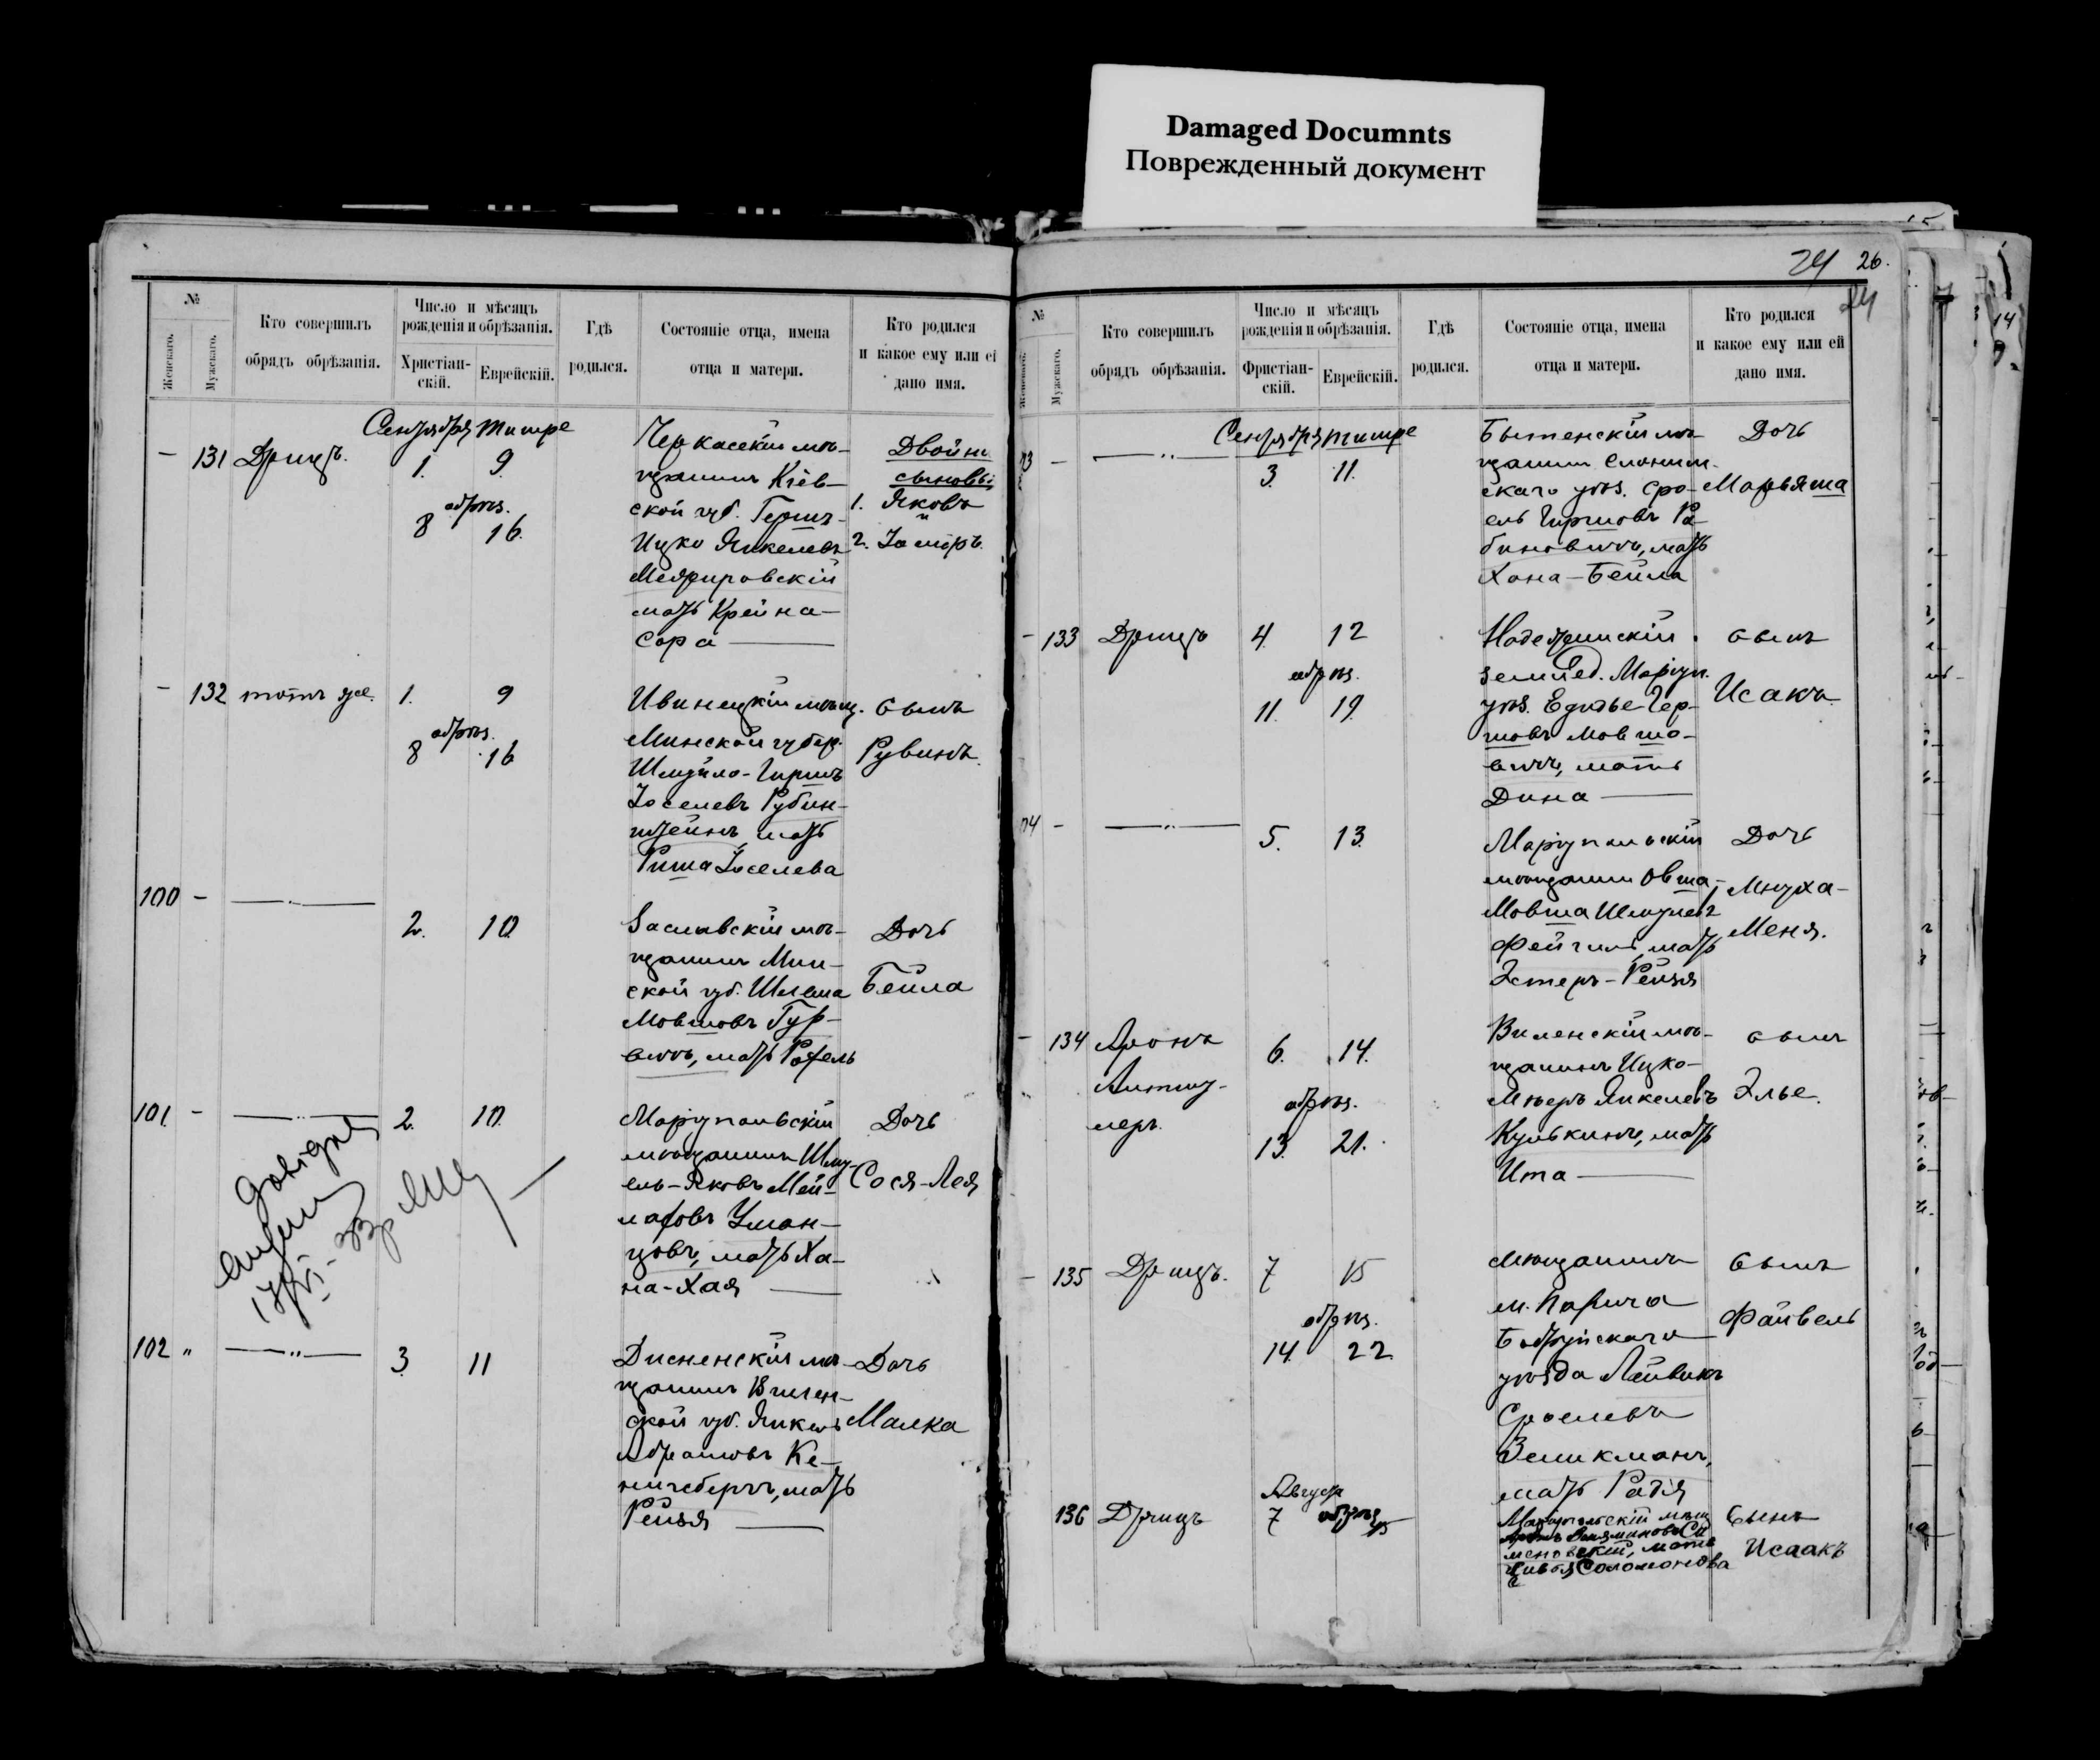 Damaged Documnts
Поврежденный документ
№
Женскаго.
Мужскаго.
Кто совершилъ
обрядъ обрѣзанія.
Число и мѣсяцъ
рожденія и обрѣзанія.
Христіан-
скій.
Еврейскій.
Гдѣ
родился.
Состояніе отца, имена
отца и матери.
Кто родился
и какое ему или ей
дано имя.
Сентября тишре
— 131 Дрицъ.
1. 9
обрѣз.
8 16.
Черкасскій мѣ-
щанинъ Кіев-
ской губ. Гершъ-
Ицко Янкелевъ
мать Крейна-
Сора —
Двойни
сыновья
1. Яковъ
и
2.
— 132 тотъ же.
1. 9
обрѣз.
8 16
Ивинецкій мѣщ.
Минской губер.
Шмуйло-Гиршъ
Іоселевъ Рубин-
штейнъ, мать
Риша Іоселева
сынъ
Рувинъ.
100 — —〃—
2. 10.
Заславскій мѣ-
щанинъ Мин-
ской губ. Шлема
Мовшовъ Гур-
вичъ, мать Рохель
Дочь
Бейла
101. — —〃—
2. 10.
Маріупольскій
мѣщанинъ Шму-
ель-Яковъ Мей-
лаховъ Уман-
цовъ, мать Ха-
на-Хая —
Дочь
Сося-Лея
102 〃 —〃—
3. 11
Дисненскій мѣ-
щанинъ Вилен-
ской губ. Янкель
Абрамовъ Ке-
нигсбергъ, мать
Рейзя —
Дочь
Малка
24 26.
24
№
Женскаго.
Мужскаго.
Кто совершилъ
обрядъ обрѣзанія.
Число и мѣсяцъ
рожденія и обрѣзанія.
Христіан-
скій.
Еврейскій.
Гдѣ
родился.
Состояніе отца, имена
отца и матери.
Кто родился
и какое ему или ей
дано имя.
Сентября тишре
03 — —〃—
3. 11.
Бытенскій мѣ-
щанинъ Слоним-
скаго уѣз. Сро-
ель Гиршовъ Ра-
биновичъ, мать
Хана-Бейла
Дочь
Марьяша
— 133 Дрицъ
4. 12
обрѣз.
11. 19.
Надежинскій
землед. Маріуп.
уѣз. Гер-
шовъ Мовшо-
вичъ, мать
Дина —
сынъ
Исакъ.
04 — —〃—
5. 13.
Маріупольскій
мѣщанинъ Овша-
Мовша Шмулевъ
Фейгинъ, мать
Эстеръ-Рейзя
Дочь
Мнуха-
Меня.
— 134 Аронъ
6. 14.
обрѣз.
13. 21.
Виленскій мѣ-
щанинъ Ицко-
Мееръ Янкелевъ
Кулькинъ, мать
Ита —
сынъ
Элье.
— 135 Дрицъ.
7 15
обрѣз.
14. 22.
Мѣщанинъ
м. Парича
Бобруйскаго
уѣзда Лейвикъ
Сроелевъ
Зеликманъ,
мать
сынъ
Файвель
136 Дрицъ
Август
7
Маріупольскій мѣщ
Соломонова
Сынъ
Исаакъ